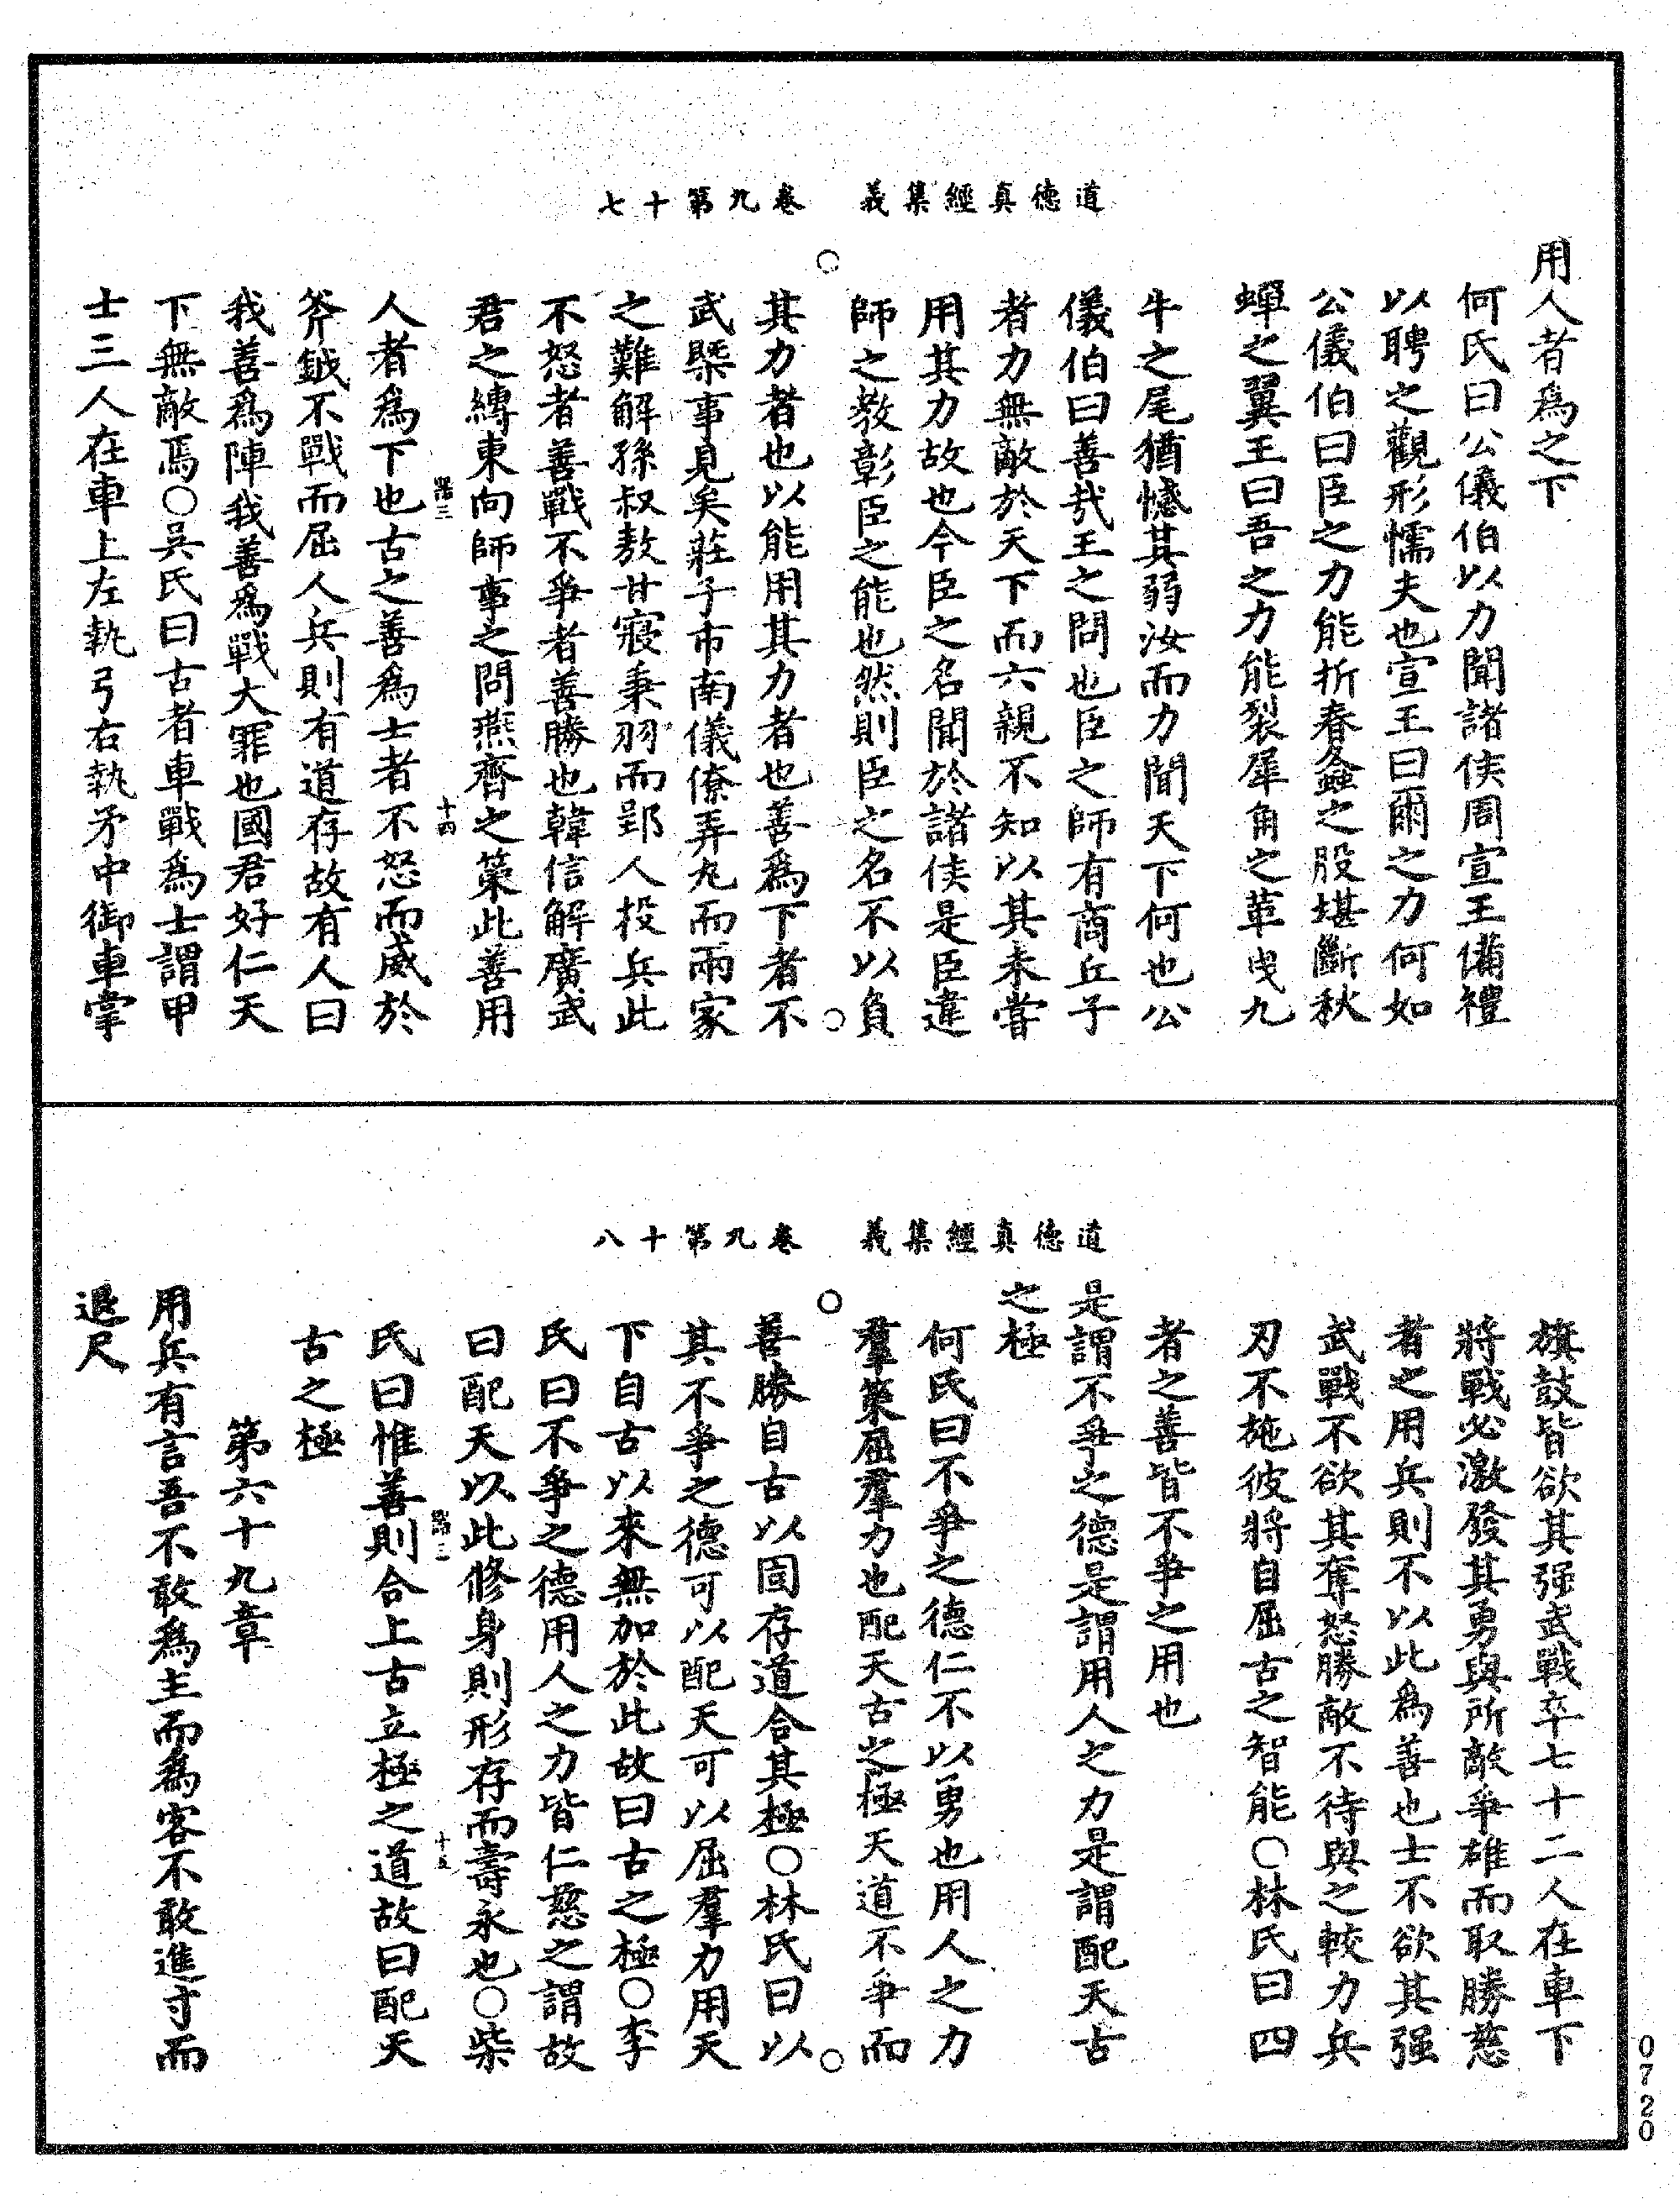 道德真經集義　卷九第十七
用人者爲之下
何氏曰公儀伯以力聞諸侯周宣王備禮
以聘之觀形懦夫也宣王曰爾之力何如
公儀伯曰臣之力能折春螽之股堪斷秋
蟬之翼王曰吾之力能裂犀角之革曳九
牛之尾猶憾其弱汝而力聞天下何也公
儀伯曰善哉王之問也臣之師有商丘子
者力無敵於天下而六親不知以其未嘗
用其力故也今臣之名聞於諸侯是臣違
師之教彰臣之能也然則臣之名不以負
其力者也以能用其力者也善爲下者不
武槩事見矣莊子市南儀僚弄丸而兩家
之難解孫叔敖甘寢秉羽而郢人投兵此
不怒者善戰不爭者善勝也韓信解廣武
君之縛東向師事之問燕齊之策此善用
人者爲下也古之善爲士者不怒而威於
斧鉞不戰而屈人兵則有道存故有人曰
我善爲陣我善爲戰大罪也國君好仁天
下無敵焉○吳氏曰古者車戰爲士謂甲
士三人在車上左執弓右執矛中御車掌
道德真經集義　卷九第十八
旗鼓皆欲其强武戰卒七十二人在車下
將戰必激發其勇與所敵爭雄而取勝慈
者之用兵則不以此爲善也士不欲其强
武戰不欲其奮怒勝敵不待與之較力兵
刃不施彼將自屈古之智能○林氏曰四
者之善皆不爭之用也
是謂不爭之德是謂用人之力是謂配天古
之極
何氏曰不爭之德仁不以勇也用人之力
羣策屈羣力也配天古之極天道不爭而
善勝自古以固存道合其極○林氏曰以
其不爭之德可以配天可以屈羣力用天
下自古以來無加於此故曰古之極○李
氏曰不爭之德用人之力皆仁慈之謂故
曰配天以此修身則形存而壽永也○柴
氏曰惟善則合上古立極之道故曰配天
古之極
第六十九章
用兵有言吾不敢爲主而爲客不敢進寸而
退尺
0720